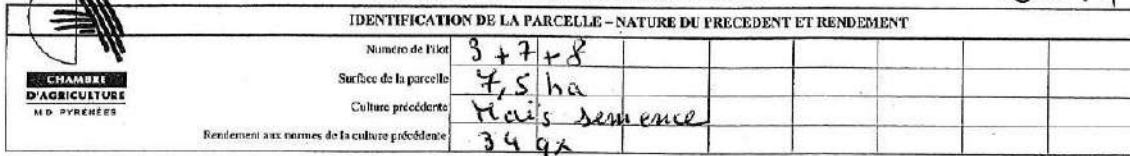 IDENTIFICATION DE LA PARCELLE – NATURE DU PRECEDENT ET RENDEMENT
Numéro de l'îlot 3 + 7 + 8
CHAMBRE
D'AGRICULTURE
MIDI PYRENEES
Surface de la parcelle 7,5 ha
Culture précédente Maïs semence
Rendement aux normes de la culture précédente 34 qx